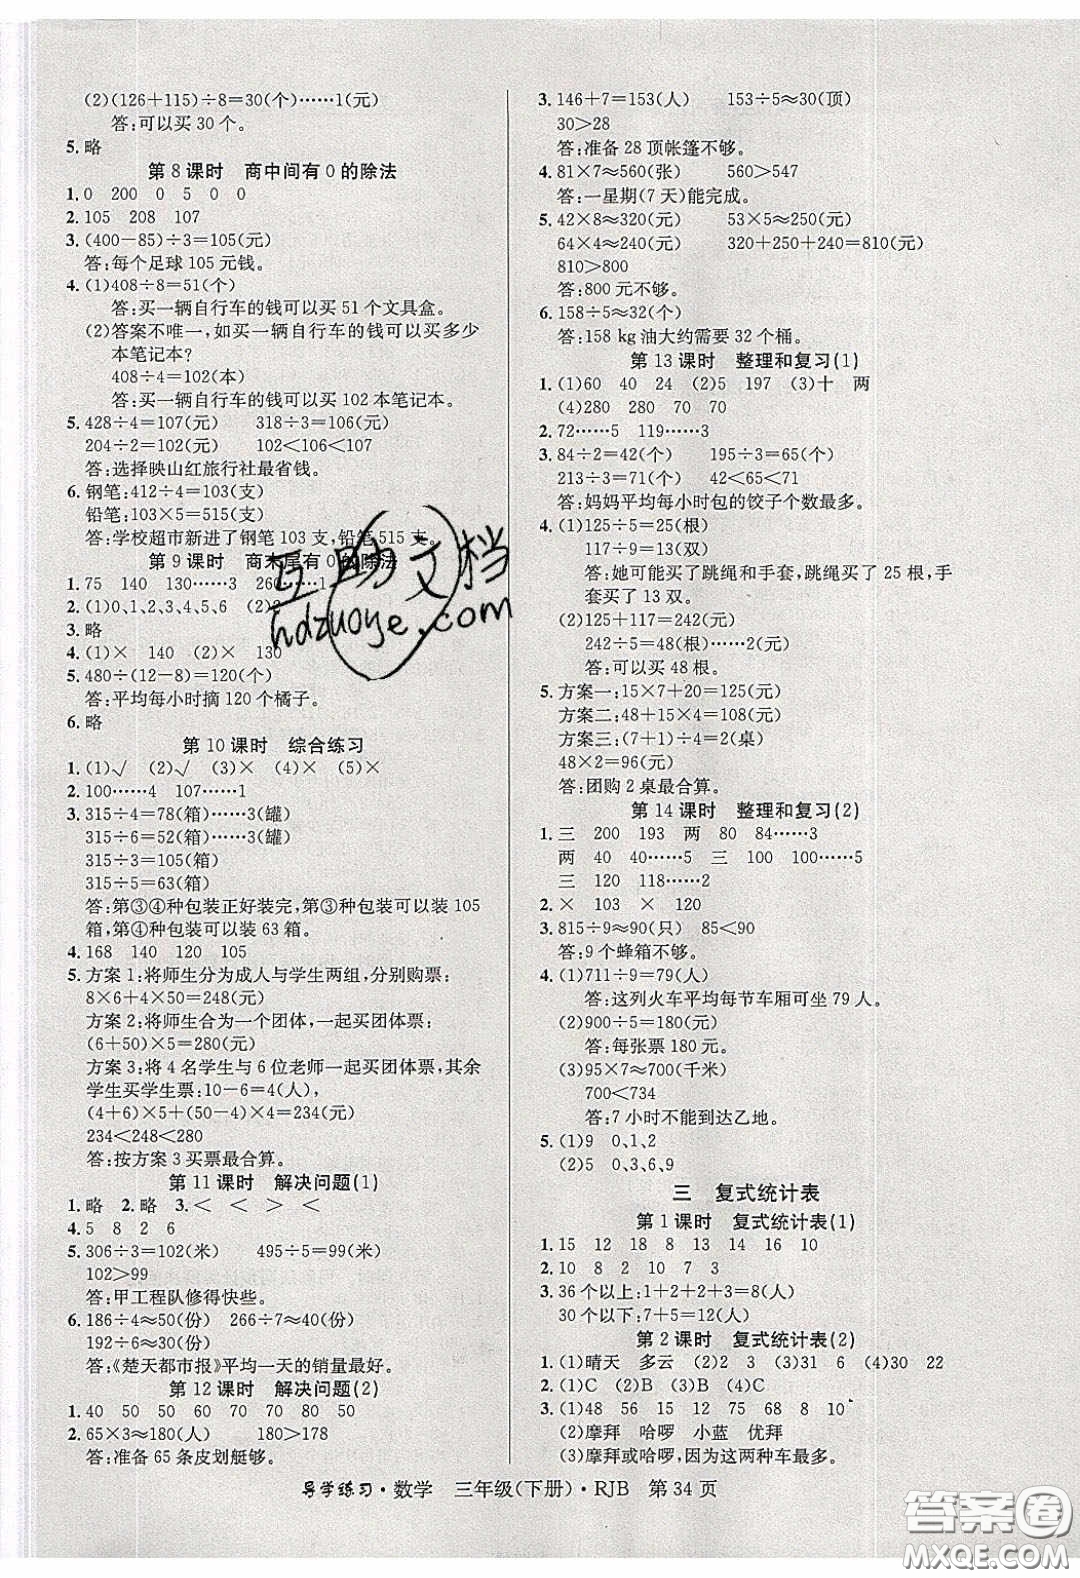 (2)(126＋115)÷8＝30(个)……1(元)
答:可以买 30 个。
5. 略
第 8 课时　商中间有 0 的除法
1. 0　200　0　5　0　0
2. 105　208　107
3. (400－85)÷3＝105(元)
答:每个足球 105 元钱。
4. (1)408÷8＝51(个)
答:买一辆自行车的钱可以买 51 个文具盒。
(2)答案不唯一,如买一辆自行车的钱可以买多少
本笔记本?
408÷4＝102(本)
答:买一辆自行车的钱可以买 102 本笔记本。
5. 428÷4＝107(元)　318÷3＝106(元)
204÷2＝102(元)　102＜106＜107
答:选择映山红旅行社最省钱。
6. 钢笔:412÷4＝103(支)
铅笔:103×5＝515(支)
答:学校超市新进了钢笔 103 支,铅笔 515 支。
第 9 课时　商末尾有 0 的除法
1. 75　140　130……3　260……1
2. (1)0、1、2、3、4、5、6　(2)
3. 略
4. (1)×　140　(2)×　130
5. 480÷(12－8)＝120(个)
答:平均每小时摘 120 个橘子。
6. 略
第 10 课时　综合练习
1. (1)√　(2)√　(3)×　(4)×　(5)×
2. 100……4　107……1
3. 315÷4＝78(箱)……3(罐)
315÷6＝52(箱)……3(罐)
315÷3＝105(箱)
315÷5＝63(箱)
答:第③④种包装正好装完,第③种包装可以装 105
箱,第④种包装可以装 63 箱。
4. 168　140　120　105
5. 方案 1:将师生分为成人与学生两组,分别购票:
8×6＋4×50＝248(元)
方案 2:将师生合为一个团体,一起买团体票:
(6＋50)×5＝280(元)
方案 3:将 4 名学生与 6 位老师一起买团体票,其余
学生买学生票:10－6＝4(人),
(4＋6)×5＋(50－4)×4＝234(元)
234＜248＜280
答:按方案 3 买票最合算。
第 11 课时　解决问题(1)
1. 略　2. 略　3. ＜　＜　＞　＜
4. 5　8　2　6
5. 306÷3＝102(米)　495÷5＝99(米)
102＞99
答:甲工程队修得快些。
6. 186÷4≈50(份)　266÷7≈40(份)
192÷6≈30(份)
答:《楚天都市报》平均一天的销量最好。
第 12 课时　解决问题(2)
1. 40　50　50　60　70　70　80　50
2. 65×3≈180(人)　180＞178
答:准备 65 条皮划艇够。
3. 146＋7＝153(人)　153÷5≈30(顶)
30＞28
答:准备 28 顶帐篷不够。
4. 81×7≈560(张)　560＞547
答:一星期(7 天)能完成。
5. 42×8≈320(元)　53×5≈250(元)
64×4≈240(元)　320＋250＋240＝810(元)
810＞800
答:800 元不够。
6. 158÷5≈32(个)
答:158 kg 油大约需要 32 个桶。
第 13 课时　整理和复习(1)
1. (1)60　40　24　(2)5　197　(3)十　两
(4)280　280　70　70
2. 72……5　119……3
3. 84÷2＝42(个)　195÷3＝65(个)
213÷3＝71(个)　42＜65＜71
答:妈妈平均每小时包的饺子个数最多。
4. (1)125÷5＝25(根)
117÷9＝13(双)
答:她可能买了跳绳和手套,跳绳买了 25 根,手
套买了 13 双。
(2)125＋117＝242(元)
242÷5＝48(根)……2(元)
答:可以买 48 根。
5. 方案一:15×7＋20＝125(元)
方案二:48＋15×4＝108(元)
方案三:(7＋1)÷4＝2(桌)
48×2＝96(元)
答:团购 2 桌最合算。
第 14 课时　整理和复习(2)
1. 三　200　193　两　80　84……3
两　40　40……5　三　100　100……5
三　120　118……2
2. ×　103　×　120
3. 815÷9≈90(只)　85＜90
答:9 个蜂箱不够。
4. (1)711÷9＝79(人)
答:这列火车平均每节车厢可坐 79 人。
(2)900÷5＝180(元)
答:每张票 180 元。
(3)95×7≈700(千米)
700＜734
答:7 小时不能到达乙地。
5. (1)9　0、1、2
(2)5　0、3、6、9
三　复式统计表
第 1 课时　复式统计表(1)
1. 15　12　18　8　13　14　16　10
2. 10　8　2　2
3. 36 个以上:1＋2＋2＋3＝8(人)
30 个以下:7＋5＝12(人)
第 2 课时　复式统计表(2)
1. (1)晴天　多云　(2)2　3　(3)31　6　(4)30　22
2. (1)C　(2)B　(3)A　(4)C
3. (1)48　56　15　21　75　68　8　10
(2)摩拜　哈啰　小蓝　优拜
(3)摩拜或哈啰,因为这两种车最多。
导学练习·数学　三年级(下册)·RJB　第 34 页
互助文档
hdzuoye.com
答案圈
MXQE.COM